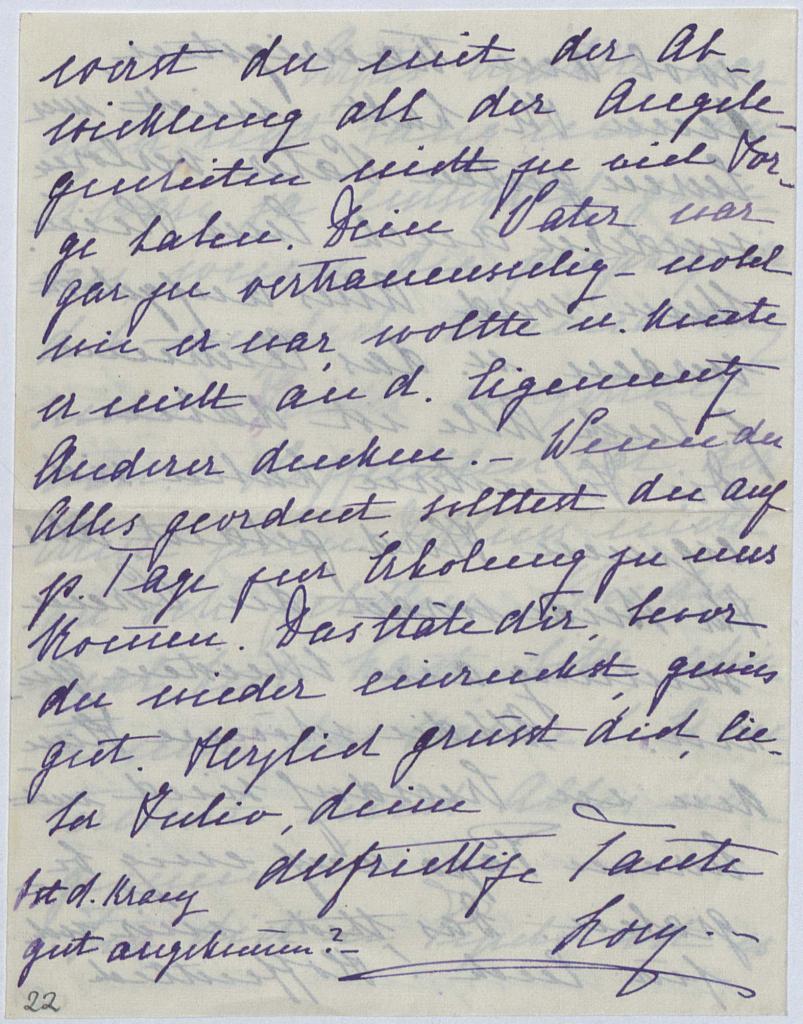 wirst du mit der Ab-
wicklung all der Angele-
genheiten nicht zu viel Sor-
ge haben. Dein Vater war
gar zu vertrauensselig – nobel
wie er war wollte u. konnte
er nicht an d. Eigennutz
Anderer denken. – Wenn du
Alles geordnet, solltest du auf
p. Tage zur Erholung zu uns
kommen. Das thäte dir, bevor
du wieder einrückst, gewiss
gut. Herzlich grüsst dich, lie-
ber Julio, deine
aufrichtige Tante
Lory. –
Ist d. Kranz
gut angekommen? –
22